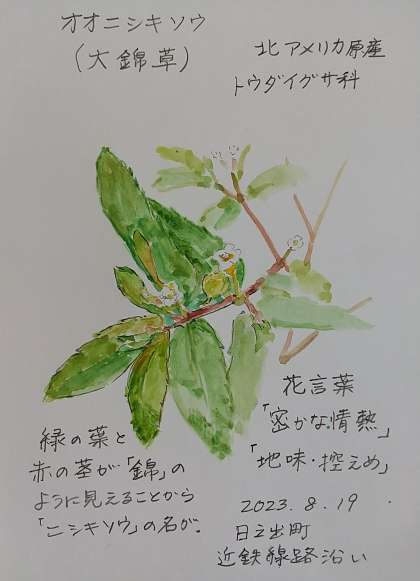 オオニシキソウ
(大錦草)
北アメリカ原産
トウダイグサ科
花言葉
「密かな情熱」
「地味・控えめ」
緑の葉と
赤の茎が「錦」の
ように見えることから
「ニシキソウ」の名が.
2023.8.19
日之出町
近鉄線路沿い